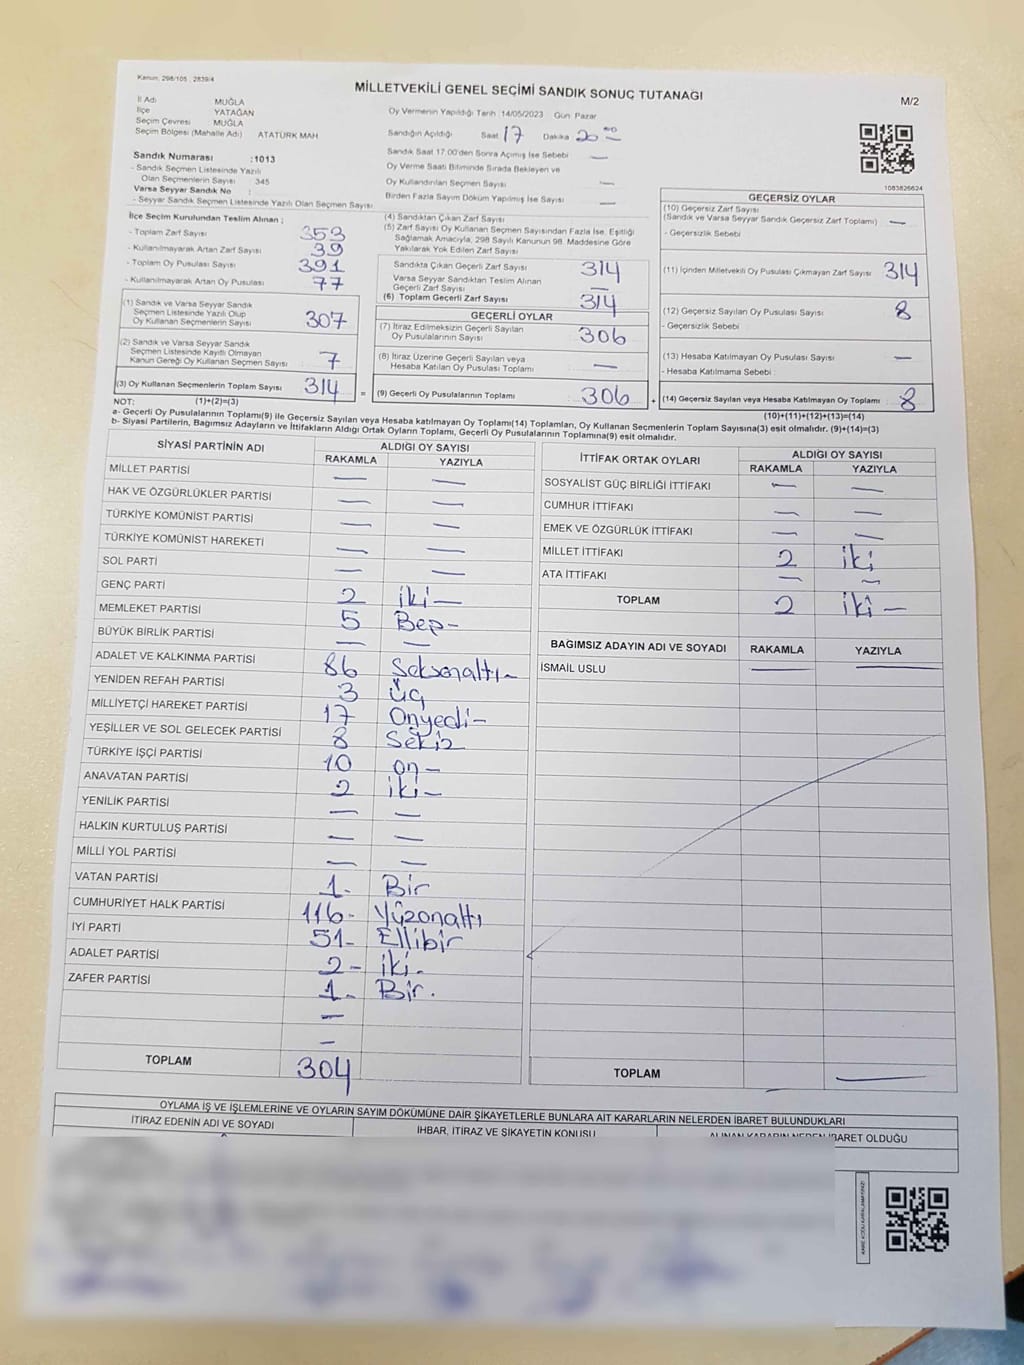 Kanun: 298/105 , 2839/4
MİLLETVEKİLİ GENEL SEÇİMİ SANDIK SONUÇ TUTANAĞI
M/2
İl Adı MUĞLA
İlçe YATAĞAN
Seçim Çevresi MUĞLA
Seçim Bölgesi (Mahalle Adı) ATATÜRK MAH
Oy Vermenin Yapıldığı Tarih :14/05/2023 Gün: Pazar
Sandığın Açıldığı Saat 17 Dakika 20
Sandık Saat 17:00'den Sonra Açımış İse Sebebi —
Oy Verme Saati Bitiminde Sırada Bekleyen ve
Oy Kullandırılan Seçmen Sayısı —
Birden Fazla Sayım Döküm Yapılmış İse Sayısı —
1083826624
Sandık Numarası :1013
- Sandık Seçmen Listesinde Yazılı
Olan Seçmenlerin Sayısı : 345
Varsa Seyyar Sandık No :
- Seyyar Sandık Seçmen Listesinde Yazılı Olan Seçmen Sayısı:
İlçe Seçim Kurulundan Teslim Alınan ;
- Toplam Zarf Sayısı 353
- Kullanılmayarak Artan Zarf Sayısı 39
- Toplam Oy Pusulası Sayısı 391
- Kullanılmayarak Artan Oy Pusulası 77
(1) Sandık ve Varsa Seyyar Sandık
Seçmen Listesinde Yazılı Olup
Oy Kullanan Seçmenlerin Sayısı 307
(2) Sandık ve Varsa Seyyar Sandık
Seçmen Listesinde Kayıtlı Olmayan
Kanun Gereği Oy Kullanan Seçmen Sayısı 7
(3) Oy Kullanan Seçmenlerin Toplam Sayısı 314 =
(4) Sandıktan Çıkan Zarf Sayısı
(5) Zarf Sayısı Oy Kullanan Seçmen Sayısından Fazla İse, Eşitliği
Sağlamak Amacıyla, 298 Sayılı Kanunun 98. Maddesine Göre
Yakılarak Yok Edilen Zarf Sayısı
Sandıkta Çıkan Geçerli Zarf Sayısı 314
Varsa Seyyar Sandıktan Teslim Alınan
Geçerli Zarf Sayısı —
(6) Toplam Geçerli Zarf Sayısı 314
GEÇERLİ OYLAR
(7) İtiraz Edilmeksizin Geçerli Sayılan
Oy Pusulalarının Sayısı 306
(8) İtiraz Üzerine Geçerli Sayılan veya
Hesaba Katılan Oy Pusulası Toplamı —
(9) Geçerli Oy Pusulalarının Toplamı 306 +
GEÇERSİZ OYLAR
(10) Geçersiz Zarf Sayısı
(Sandık ve Varsa Seyyar Sandık Geçersiz Zarf Toplamı) —
- Geçersizlik Sebebi
(11) İçinden Milletvekili Oy Pusulası Çıkmayan Zarf Sayısı 314
(12) Geçersiz Sayılan Oy Pusulası Sayısı 8
- Geçersizlik Sebebi :
(13) Hesaba Katılmayan Oy Pusulası Sayısı —
- Hesaba Katılmama Sebebi :
(14) Geçersiz Sayılan veya Hesaba Katılmayan Oy Toplamı : 8
NOT: (1)+(2)=(3)
(10)+(11)+(12)+(13)=(14)
a- Geçerli Oy Pusulalarının Toplamı(9) ile Geçersiz Sayılan veya Hesaba katılmayan Oy Toplamı(14) Toplamları, Oy Kullanan Seçmenlerin Toplam Sayısına(3) eşit olmalıdır. (9)+(14)=(3)
b- Siyasi Partilerin, Bağımsız Adayların ve İttifakların Aldığı Ortak Oyların Toplamı, Geçerli Oy Pusulalarının Toplamına(9) eşit olmalıdır.
SİYASİ PARTİNİN ADI ALDIĞI OY SAYISI
RAKAMLA YAZIYLA
MİLLET PARTİSİ — —
HAK VE ÖZGÜRLÜKLER PARTİSİ — —
TÜRKİYE KOMÜNİST PARTİSİ — —
TÜRKİYE KOMÜNİST HAREKETİ — —
SOL PARTİ — —
GENÇ PARTİ 2 iki —
MEMLEKET PARTİSİ 5 Beş -
BÜYÜK BİRLİK PARTİSİ — —
ADALET VE KALKINMA PARTİSİ 86 Seksenaltı -
YENİDEN REFAH PARTİSİ 3 Üç
MİLLİYETÇİ HAREKET PARTİSİ 17 Onyedi -
YEŞİLLER VE SOL GELECEK PARTİSİ 8 Sekiz
TÜRKİYE İŞÇİ PARTİSİ 10 on -
ANAVATAN PARTİSİ 2 iki -
YENİLİK PARTİSİ — —
HALKIN KURTULUŞ PARTİSİ — —
MİLLİ YOL PARTİSİ — —
VATAN PARTİSİ 1- Bir
CUMHURİYET HALK PARTİSİ 116- Yüzonaltı
İYİ PARTİ 51- Ellibir
ADALET PARTİSİ 2- iki.
ZAFER PARTİSİ 1- Bir.
—
—
TOPLAM 304
İTTİFAK ORTAK OYLARI ALDIĞI OY SAYISI
RAKAMLA YAZIYLA
SOSYALİST GÜÇ BİRLİĞİ İTTİFAKI — —
CUMHUR İTTİFAKI — —
EMEK VE ÖZGÜRLÜK İTTİFAKI — —
MİLLET İTTİFAKI 2 iki
ATA İTTİFAKI — —
TOPLAM 2 iki —
BAĞIMSIZ ADAYIN ADI VE SOYADI RAKAMLA YAZIYLA
İSMAİL USLU — —
TOPLAM — —
OYLAMA İŞ VE İŞLEMLERİNE VE OYLARIN SAYIM DÖKÜMÜNE DAİR ŞİKAYETLERLE BUNLARA AİT KARARLARIN NELERDEN İBARET BULUNDUKLARI
İTİRAZ EDENİN ADI VE SOYADI
İHBAR, İTİRAZ VE ŞİKAYETİN KONUSU
ALINAN KARARIN NEDEN İBARET OLDUĞU